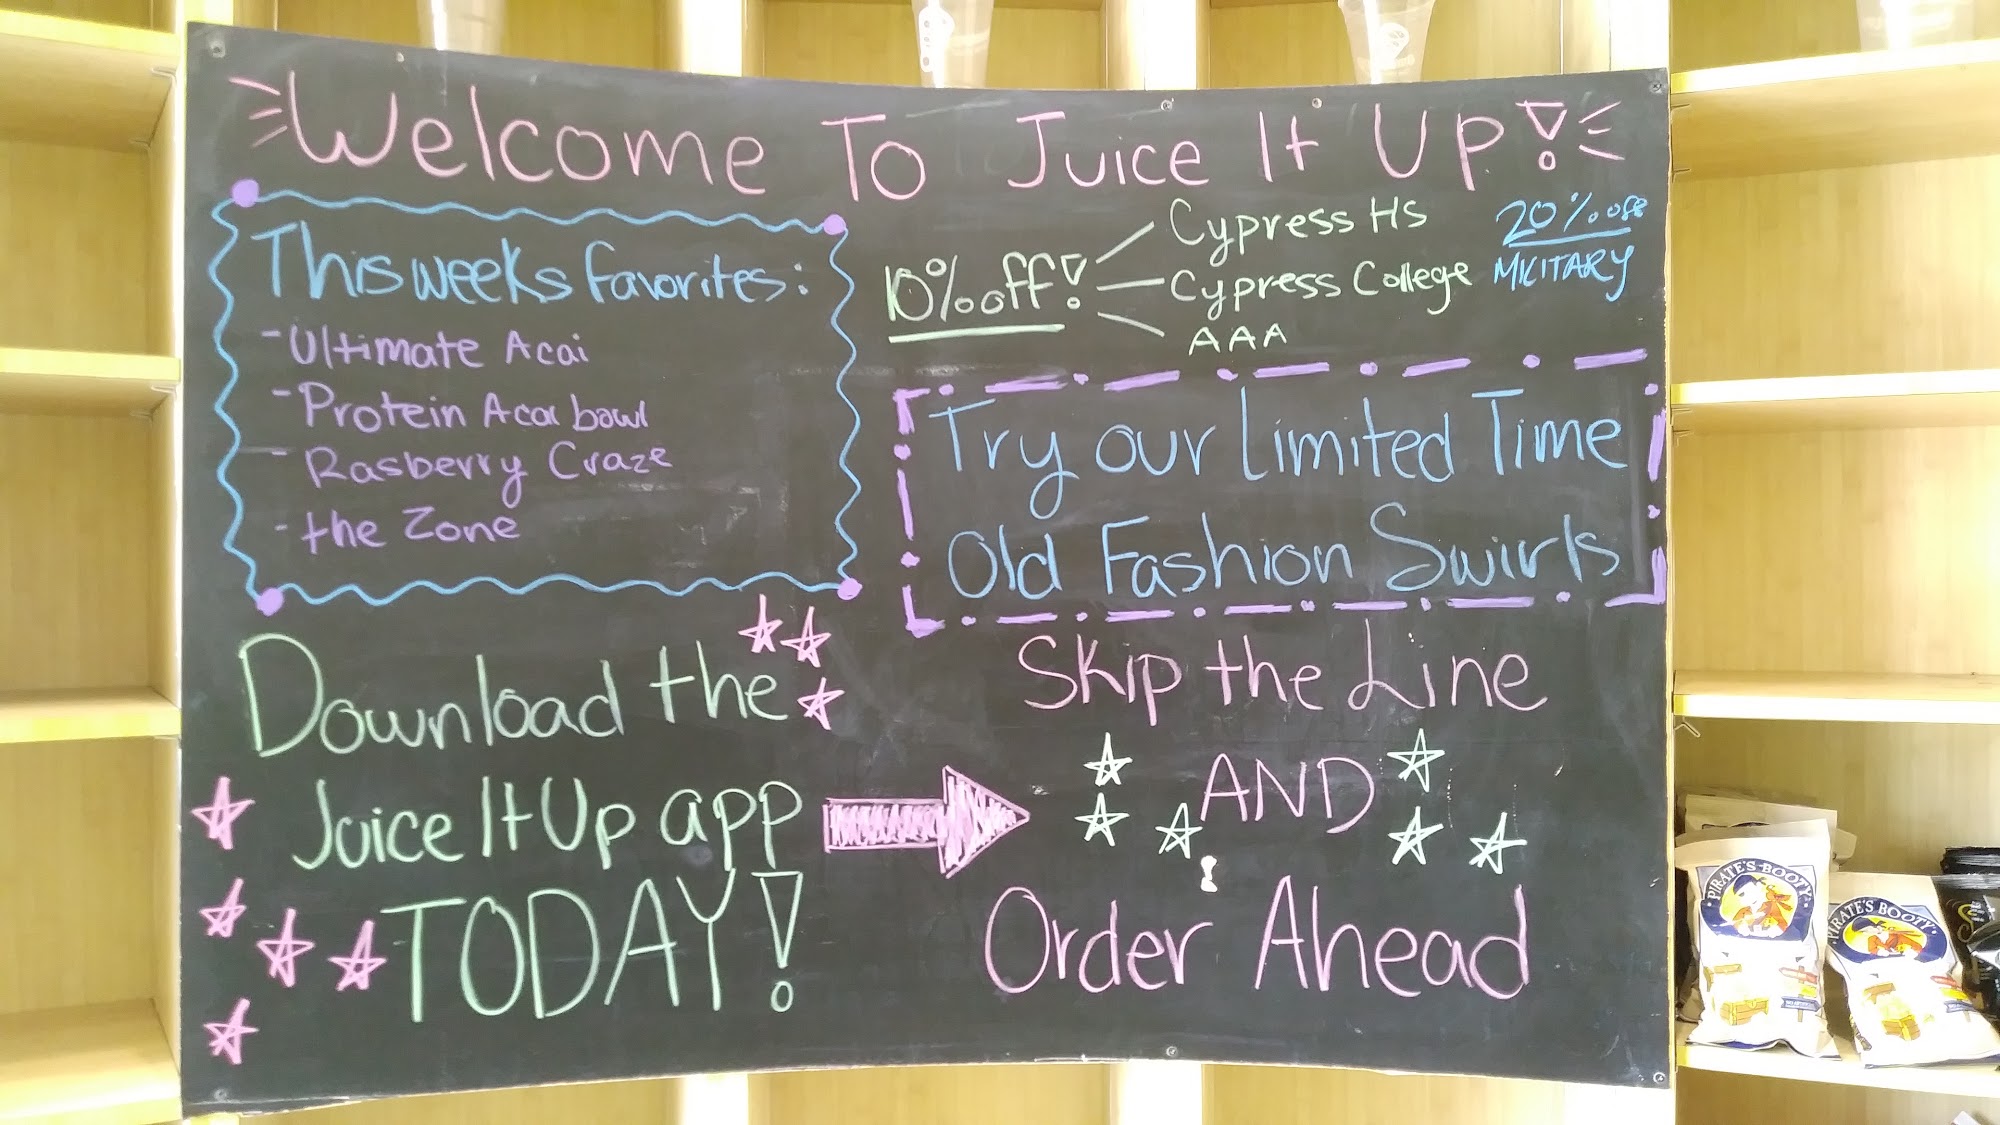 Welcome To Juice It Up!
This weeks favorites:
- Ultimate Acai
- Protein Acai bowl
- Rasberry Craze
- the Zone
10% off!
Cypress HS
Cypress College
AAA
20% off
MILITARY
Try our Limited Time
Old Fashion Swirls
Download the
Juice It Up app
TODAY!
Skip the Line
AND
Order Ahead
PIRATE'S BOOTY
PIRATE'S BOOTY